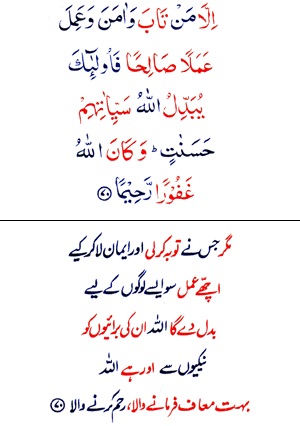 اِلَّا مَنْ تَابَ وَاٰمَنَ وَعَمِلَ
عَمَلًا صَالِحًا فَاُولٰٓئِكَ
يُبَدِّلُ اللّٰهُ سَيِّاٰتِهِمْ
حَسَنٰتٍ ؕ وَ كَانَ اللّٰهُ
غَفُوْرًا رَّحِيْمًا ﴿۷۰﴾
مگر جس نے توبہ کر لی اور ایمان لا کر کیے
اچھے عمل سو ایسے لوگوں کے لیے
بدل دے گا اللہ ان کی برائیوں کو
نیکیوں سے اور ہے اللہ
بہت معاف فرمانے والا، رحم کرنے والا ﴿۷۰﴾